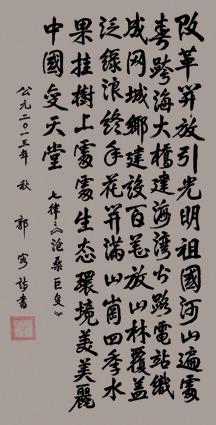 改革开放引光明祖国河山遍處
春跨海大橋建海湾公路電站織
成网城鄉建设百花放山林覆盖
泛绿浪終年花开满山崗四季水
果挂樹上處處生态環境美美麗
中國变天堂
七律：《沧桑巨变》
公元二〇一三年 秋 郭 詩書